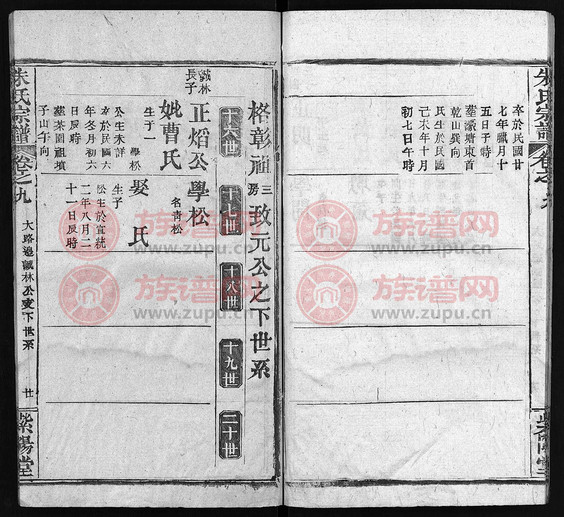 卒於民國廿
七年臘月十
五日子時
乾山巽向
氏生於民國
己未年十月
初七日午時
格彰祖三房政元公之下世系
十六世
十七世
十八世
十九世
二十世
誠林長子
正熖公
妣曹氏
生子一
學松
公生未詳
卒於民國六
年冬月初六
日辰時
墓茶園祖墳
子山午向
學松
名青松
娶 氏
生子
松生於宣統
二年八月二
十一日辰時
朱氏宗譜
卷之九
大路邊誠林公支下世系
廿
紫陽堂
族谱网
www.zupu.cn
族谱网
www.zupu.cn
族谱网
www.zupu.cn
族谱网
www.zupu.cn